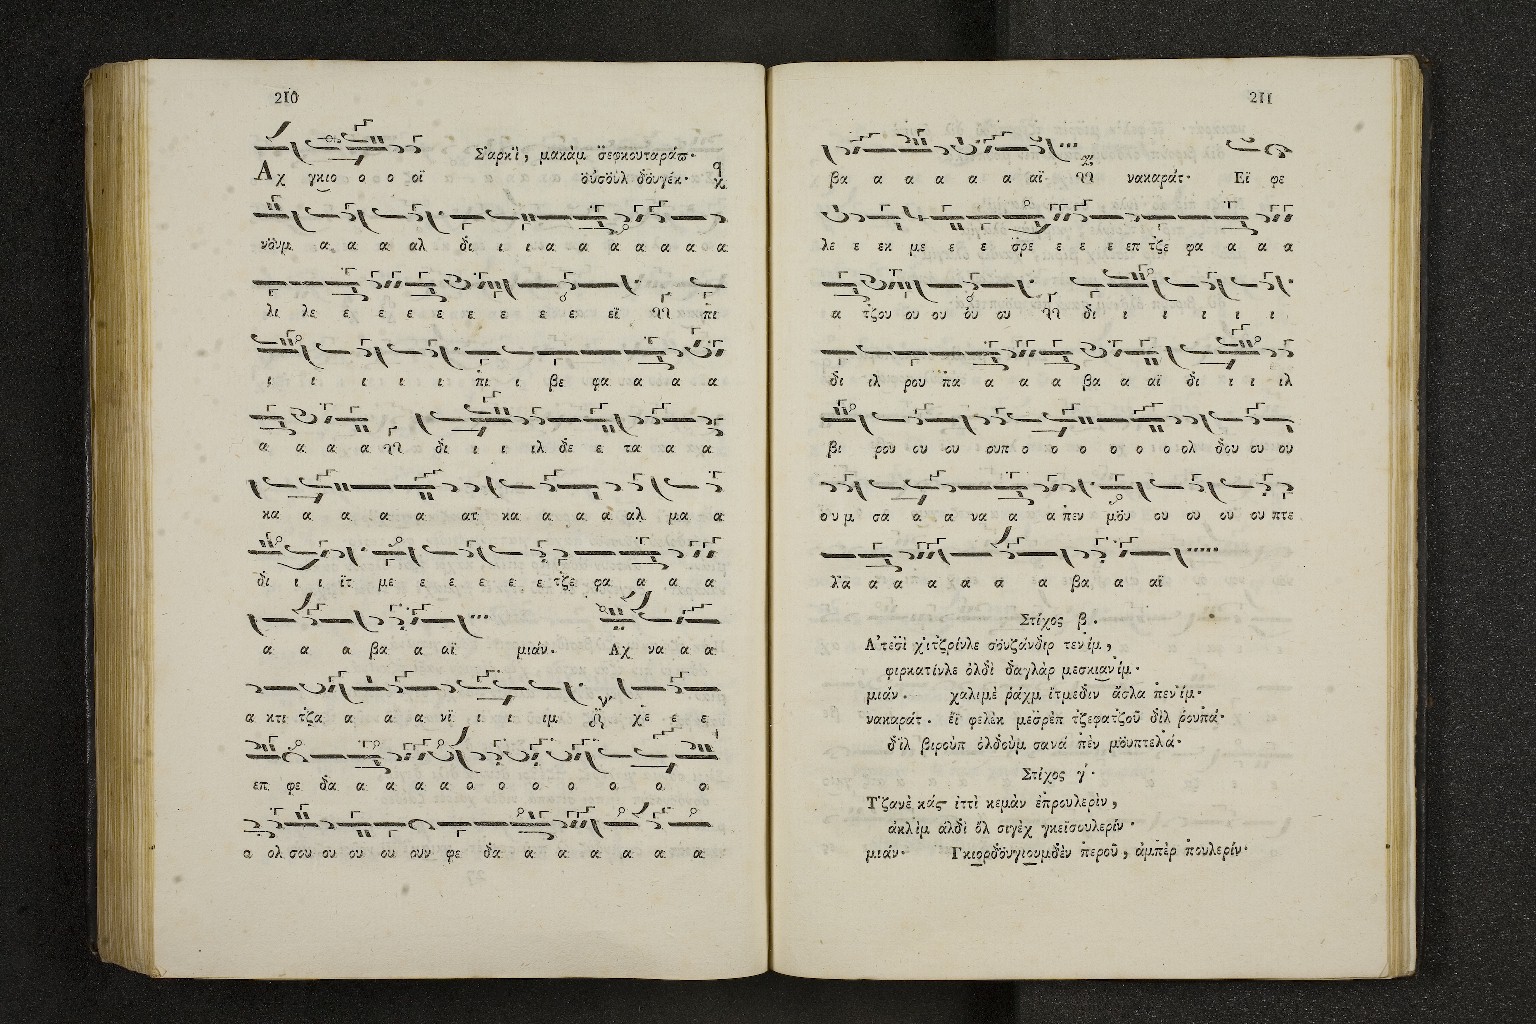 210
Σαρκὶ, μακὰμ σεφκουταράπ.
Αχ γκιο ο ο οϊ οὐσοὺλ δουγέκ.
νουμ α α α αλ δι ι ι α α α α α α α α
λι λε ε ε ε ε ε ε ε ε εϊ πι
ι ι ι ι ι ι πι ι βε φα α α α
α α α α δι ι ι ιλ δε ε τα α α
κα α α α α ατ κα α α α αλ μα α
δι ι ι ϊτ με ε ε ε ε ε τζε φα α α α
α α α βα α αϊ μιάν. Αχ να α α
α κτι τζα α α α νϊ ι ι ιμ χὲ ε ε
επ φε δα α α α α ο ο ο ο ο ο ο
ο ολ σου ου ου ου ουν φε δα α α α α α α
211
βα α α α α α αϊ νακαράτ. Εϊ φε
λε ε εκ με ε ε σρε ε ε ε επ τζε φα α α α
α τζου ου ου ου ου δι ι ι ι ι ι
δι ιλ ρου πα α α α βα α αϊ δι ι ι ιλ
βι ρου ου ου ουπ ο ο ο ο ο ο ολ δου ου ου
ουμ σα α α να α α πεν μου ου ου ου ου πτε
λα α α α α α α βα α αϊ
Στίχος β.
Ατεσὶ χιτζρίνλε σουζάνδιρ τενὶμ,
φιρκατίνλε ὀλδὶ δαγλὰρ μεσκιανὶμ.
μιάν. χαλιμὲ ῥάχμ ἰτμεδιν ἄσλα πενὶμ.
νακαράτ. ἒϊ φελὲκ μεσρὲπ τζεφατζοῦ δὶλ ῥουπά.
δὶλ βιροὺπ ὀλδοὺμ σανὰ πὲν μουπτελά.
Στίχος γ.
Τζανὲ κάστ ἰττὶ κεμὰν ἐπρουλερὶν,
ἀκλὶμ ἀλδὶ ὃλ σιγὲχ γκεϊσουλερίν.
μιάν. Γκιορδουγιουμδὲν περοῦ, ἀμπὲρ πουλερίν.